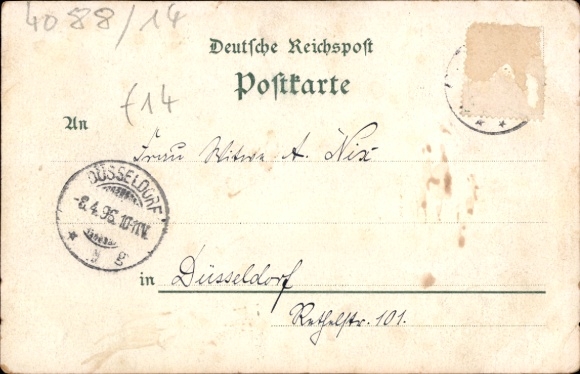 4088/14
Deutsche Reichspost
Postkarte
£14
An
Frau Witwe A. Nix
DÜSSELDORF
-8.4.96.10-11V.
* g
in Düsseldorf
Rethelstr. 101.